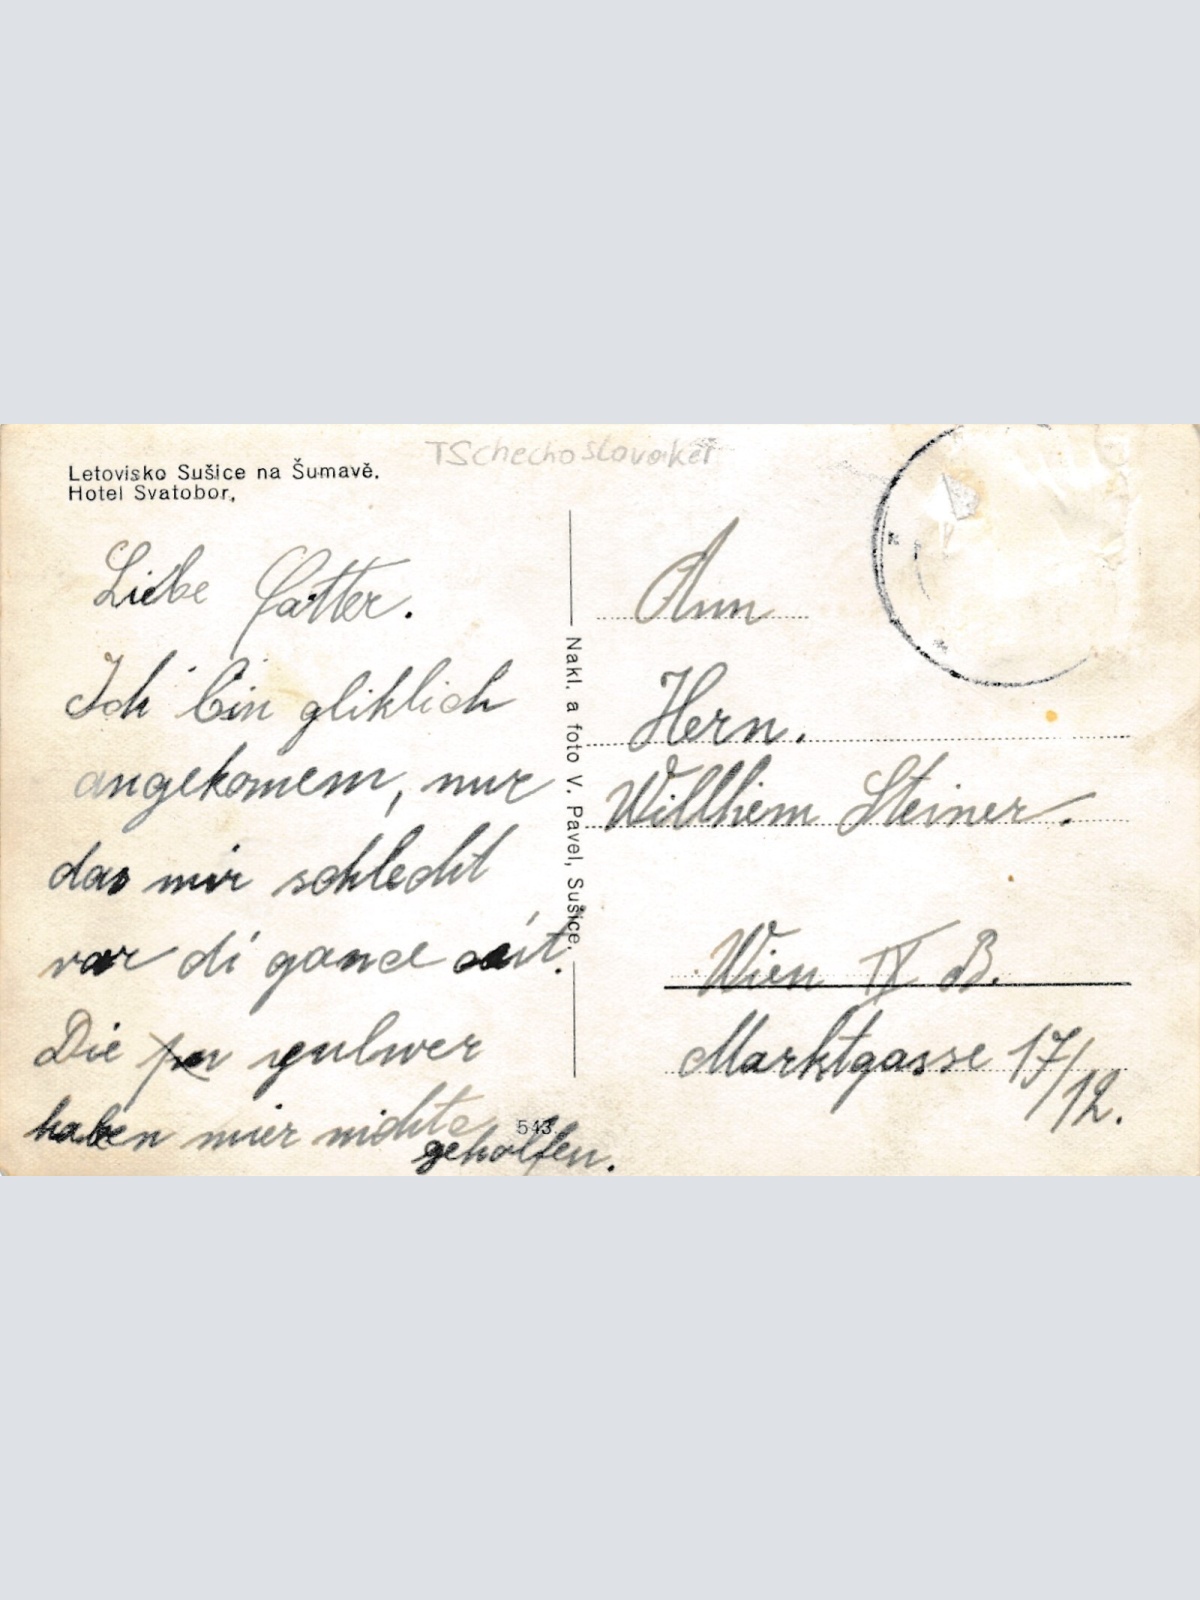 TSchechoslovakei
Letovisko Sušice na Šumavě.
Hotel Svatobor,
Liebe Fatter.
Ich bin gliklich
angekomem, nur
das mir schlecht
var di gance ceit.
Die pulwer
haben mier nichte
geholfen.
543.
Nakl. a foto V. Pavel, Sušice.
Ann
Hern.
Willhiem Steiner.
Wien IX B.
Marktgasse 17/12.